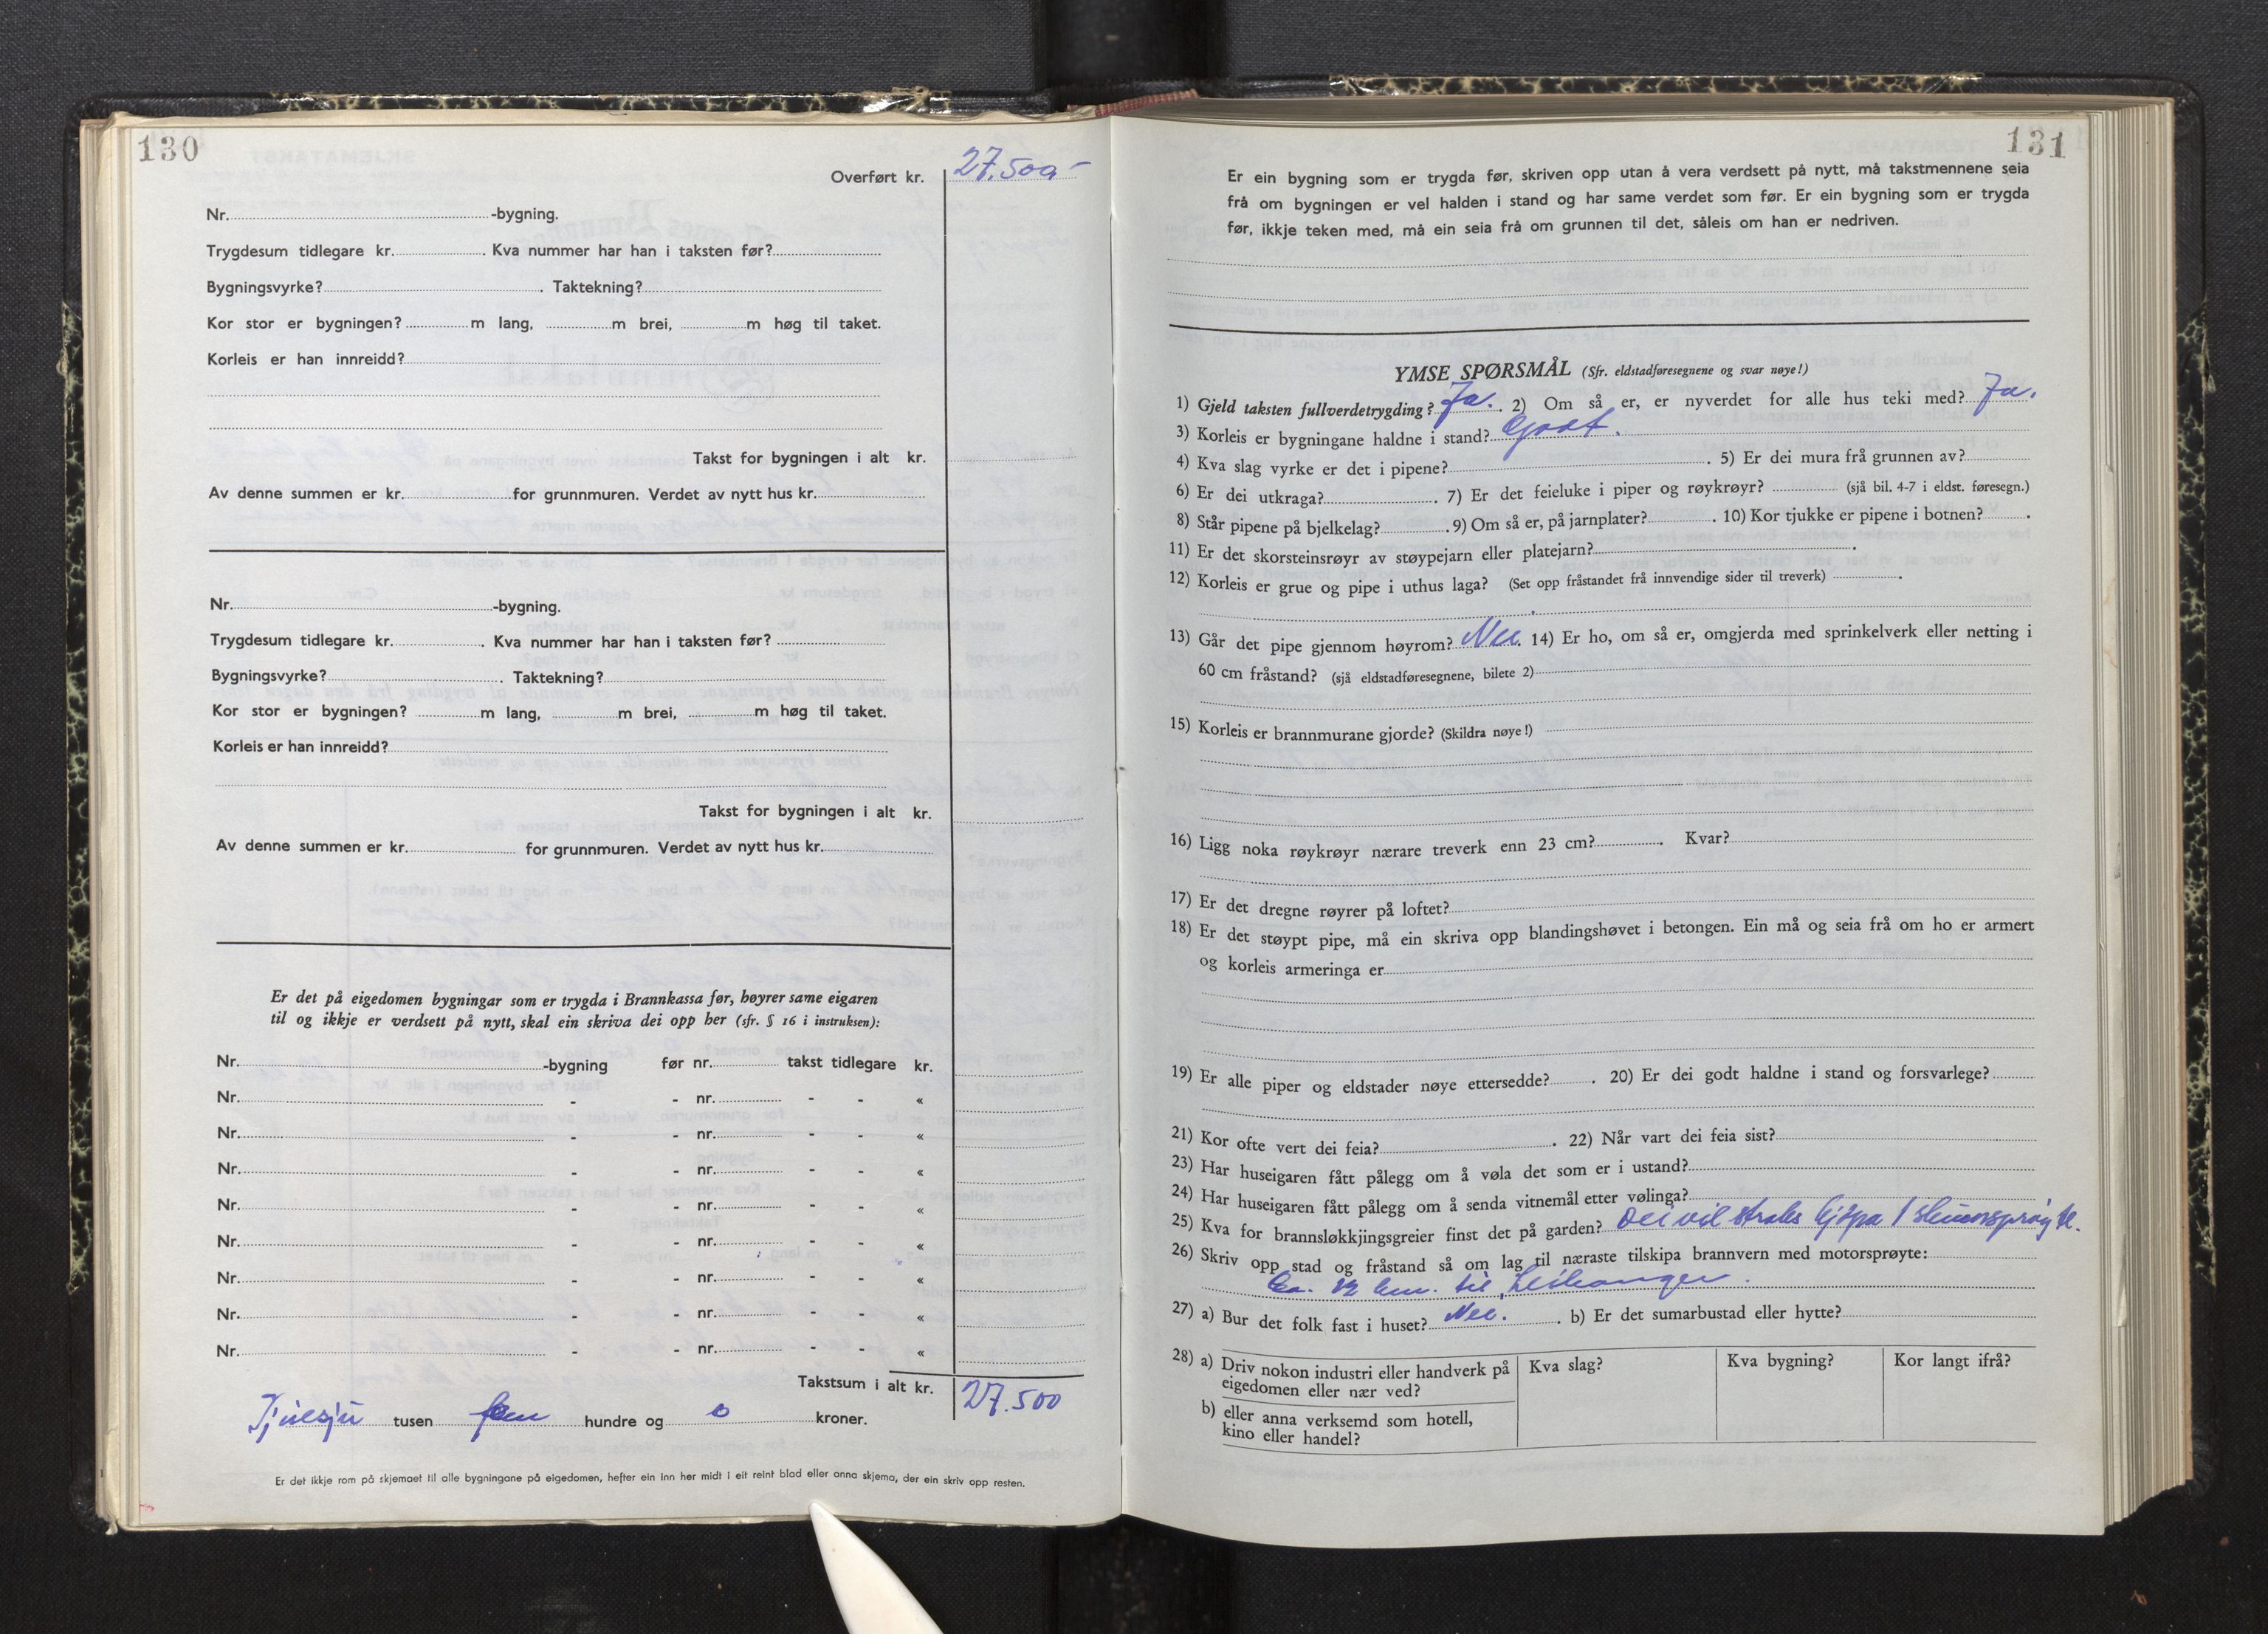 130
Overført kr. 27.500,-
Nr. -bygning.
Trygdesum tidlegare kr. . Kva nummer har han i taksten før?
Bygningsvyrke? . Taktekning?
Kor stor er bygningen? m lang, m brei, m høg til taket.
Korleis er han innreidd?
Takst for bygningen i alt kr.
Av denne summen er kr. for grunnmuren. Verdet av nytt hus kr.
Nr. -bygning.
Trygdesum tidlegare kr. . Kva nummer har han i taksten før?
Bygningsvyrke? . Taktekning?
Kor stor er bygningen? m lang, m brei, m høg til taket.
Korleis er han innreidd?
Takst for bygningen i alt kr.
Av denne summen er kr. for grunnmuren. Verdet av nytt hus kr.
Er det på eigedomen bygningar som er trygda i Brannkassa før, høyrer same eigaren
til og ikkje er verdsett på nytt, skal ein skriva dei opp her (sfr. § 16 i instruksen):
Nr. -bygning før nr. takst tidlegare kr.
Nr. - - nr. - - «
Nr. - - nr. - - «
Nr. - - nr. - - «
Nr. - - nr. - - «
Nr. - - nr. - - «
Nr. - - nr. - - «
Nr. - - nr. - - «
Nr. - - nr. - - «
Takstsum i alt kr. 27.500
Tjuesju tusen fem hundre og 0 kroner.
Er det ikkje rom på skjemaet til alle bygningane på eigedomen, hefter ein inn her midt i eit reint blad eller anna skjema, der ein skriv opp resten.
131
Er ein bygning som er trygda før, skriven opp utan å vera verdsett på nytt, må takstmennene seia
frå om bygningen er vel halden i stand og har same verdet som før. Er ein bygning som er trygda
før, ikkje teken med, må ein seia frå om grunnen til det, såleis om han er nedriven.
YMSE SPØRSMÅL (Sfr. eldstadføresegnene og svar nøye!)
1) Gjeld taksten fullverdetrygding? Ja. . 2) Om så er, er nyverdet for alle hus teki med? Ja.
3) Korleis er bygningane haldne i stand? Godt.
4) Kva slag vyrke er det i pipene? . 5) Er dei mura frå grunnen av?
6) Er dei utkraga? . 7) Er det feieluke i piper og røykrøyr? (sjå bil. 4-7 i eldst. føresegn.)
8) Står pipene på bjelkelag? . 9) Om så er, på jarnplater? . 10) Kor tjukke er pipene i botnen? .
11) Er det skorsteinsrøyr av støypejarn eller platejarn? .
12) Korleis er grue og pipe i uthus laga? (Set opp fråstandet frå innvendige sider til treverk) .
13) Går det pipe gjennom høyrom? Nei. 14) Er ho, om så er, omgjerda med sprinkelverk eller netting i
60 cm fråstand? (sjå eldstadføresegnene, bilete 2)
15) Korleis er brannmurane gjorde? (Skildra nøye!)
16) Ligg noka røykrøyr nærare treverk enn 23 cm? . Kvar?
17) Er det dregne røyrer på loftet?
18) Er det støypt pipe, må ein skriva opp blandingshøvet i betongen. Ein må og seia frå om ho er armert
og korleis armeringa er
19) Er alle piper og eldstader nøye ettersedde? . 20) Er dei godt haldne i stand og forsvarlege?
21) Kor ofte vert dei feia? . 22) Når vart dei feia sist?
23) Har huseigaren fått pålegg om å vøla det som er i ustand?
24) Har huseigaren fått pålegg om å senda vitnemål etter vølinga?
25) Kva for brannsløkkjingsgreier finst det på garden? Dei vil straks kjøpa 1 skumsprøyte.
26) Skriv opp stad og fråstand så om lag til næraste tilskipa brannvern med motorsprøyte:
Ca. 12 km. til Leikanger.
27) a) Bur det folk fast i huset? Nei. . b) Er det sumarbustad eller hytte?
28) a) Driv nokon industri eller handverk på Kva slag? Kva bygning? Kor langt ifrå?
eigedomen eller nær ved?
b) eller anna verksemd som hotell,
kino eller handel?